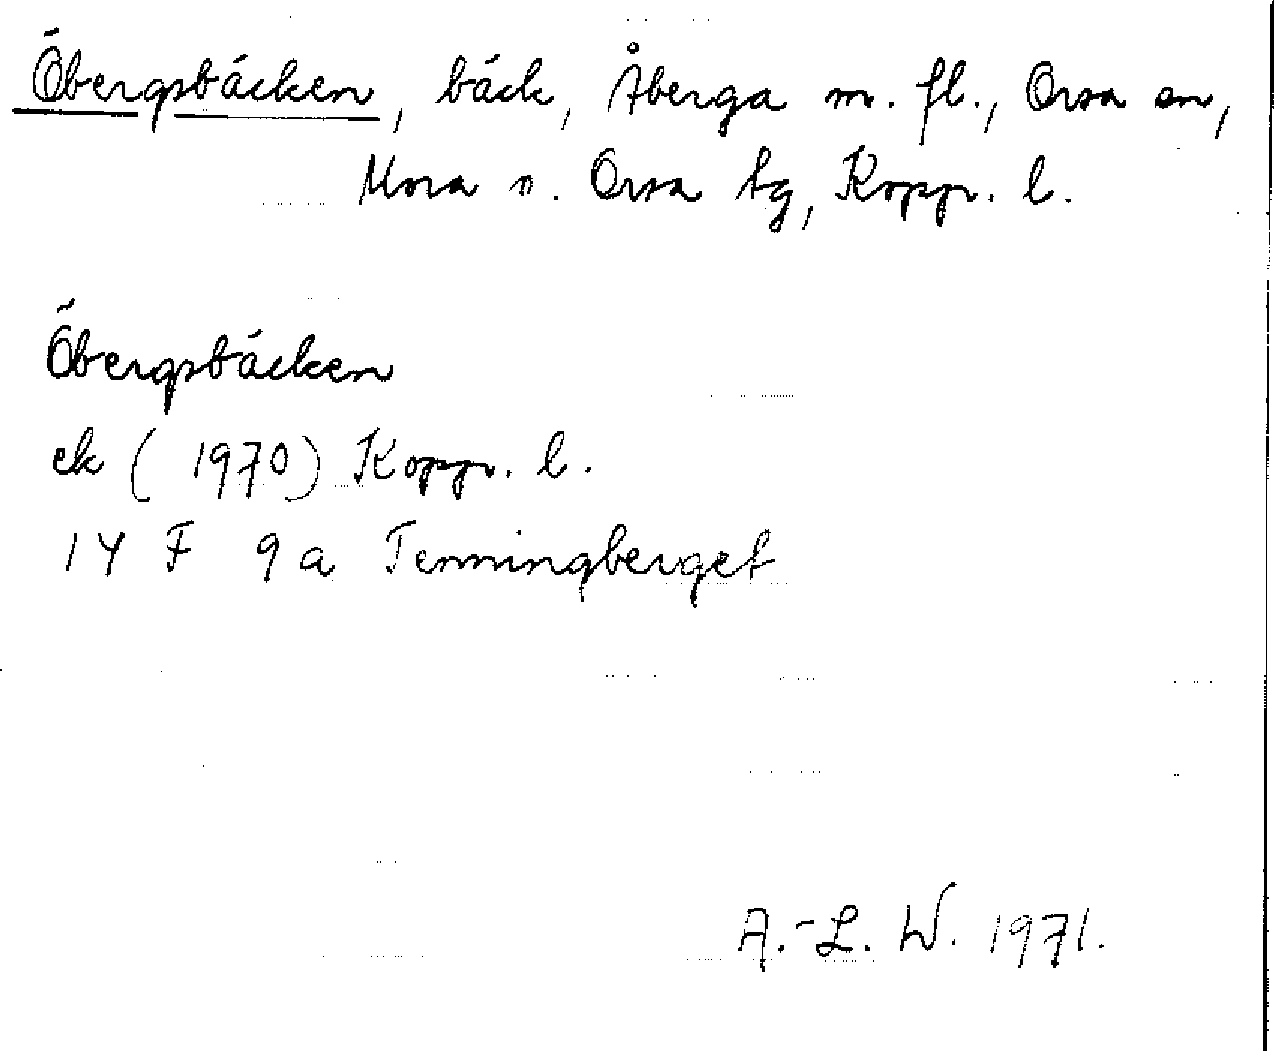 Öbergsbäcken, bäck, Åberga m. fl., Orsa sn,
Mora o. Orsa tg, Kopp. l.
Öbergsbäcken
ek (1970) Kopp. l.
14 F 9a Tenningberget
A.-L. W. 1971.